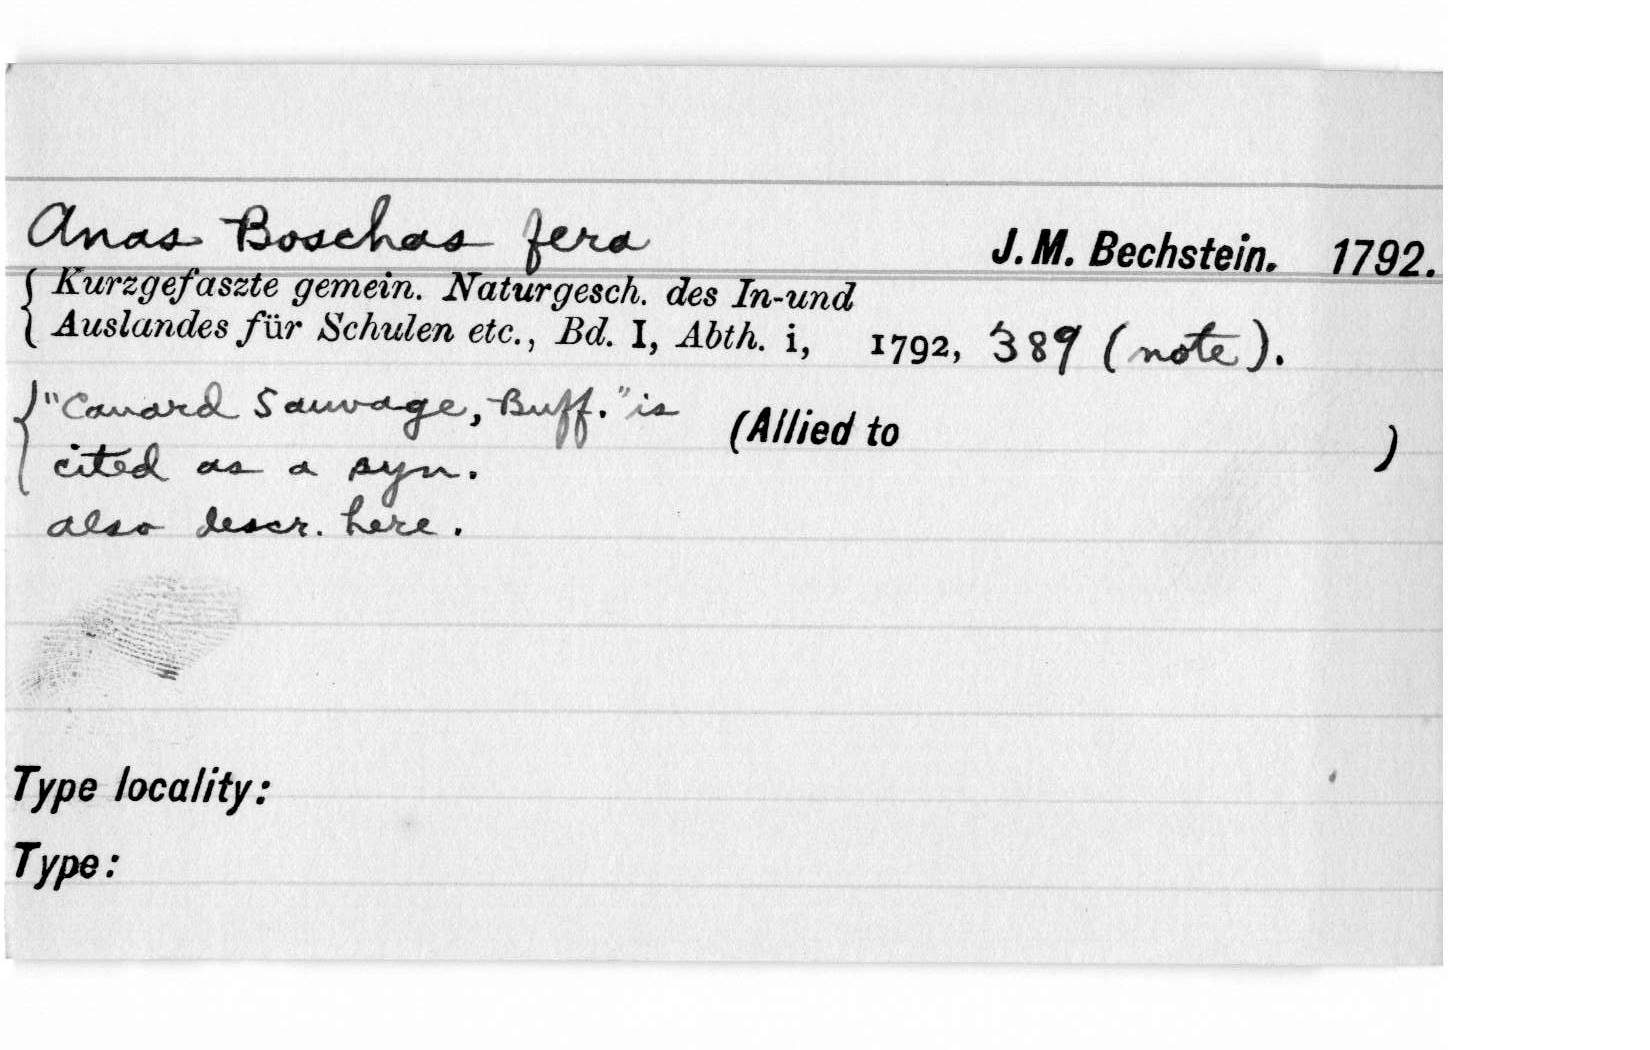 Anas Boschas fera J. M. Bechstein. 1792.
Kurzgefaszte gemein. Naturgesch. des In-und
Auslandes für Schulen etc., Bd. I, Abth. i, 1792, 389 (note).
"Canard Sauvage, Buff." is
cited as a syn. (Allied to )
also descr. here.
Type locality:
Type: